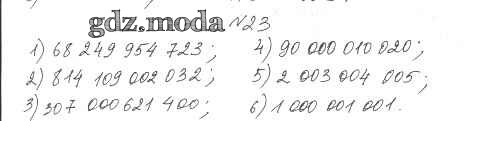 gdz.moda №23
1) 68 249 954 723; 4) 90 000 010 020;
2) 814 109 002 032; 5) 2 003 004 005;
3) 307 000 621 400; 6) 1 000 001 001.